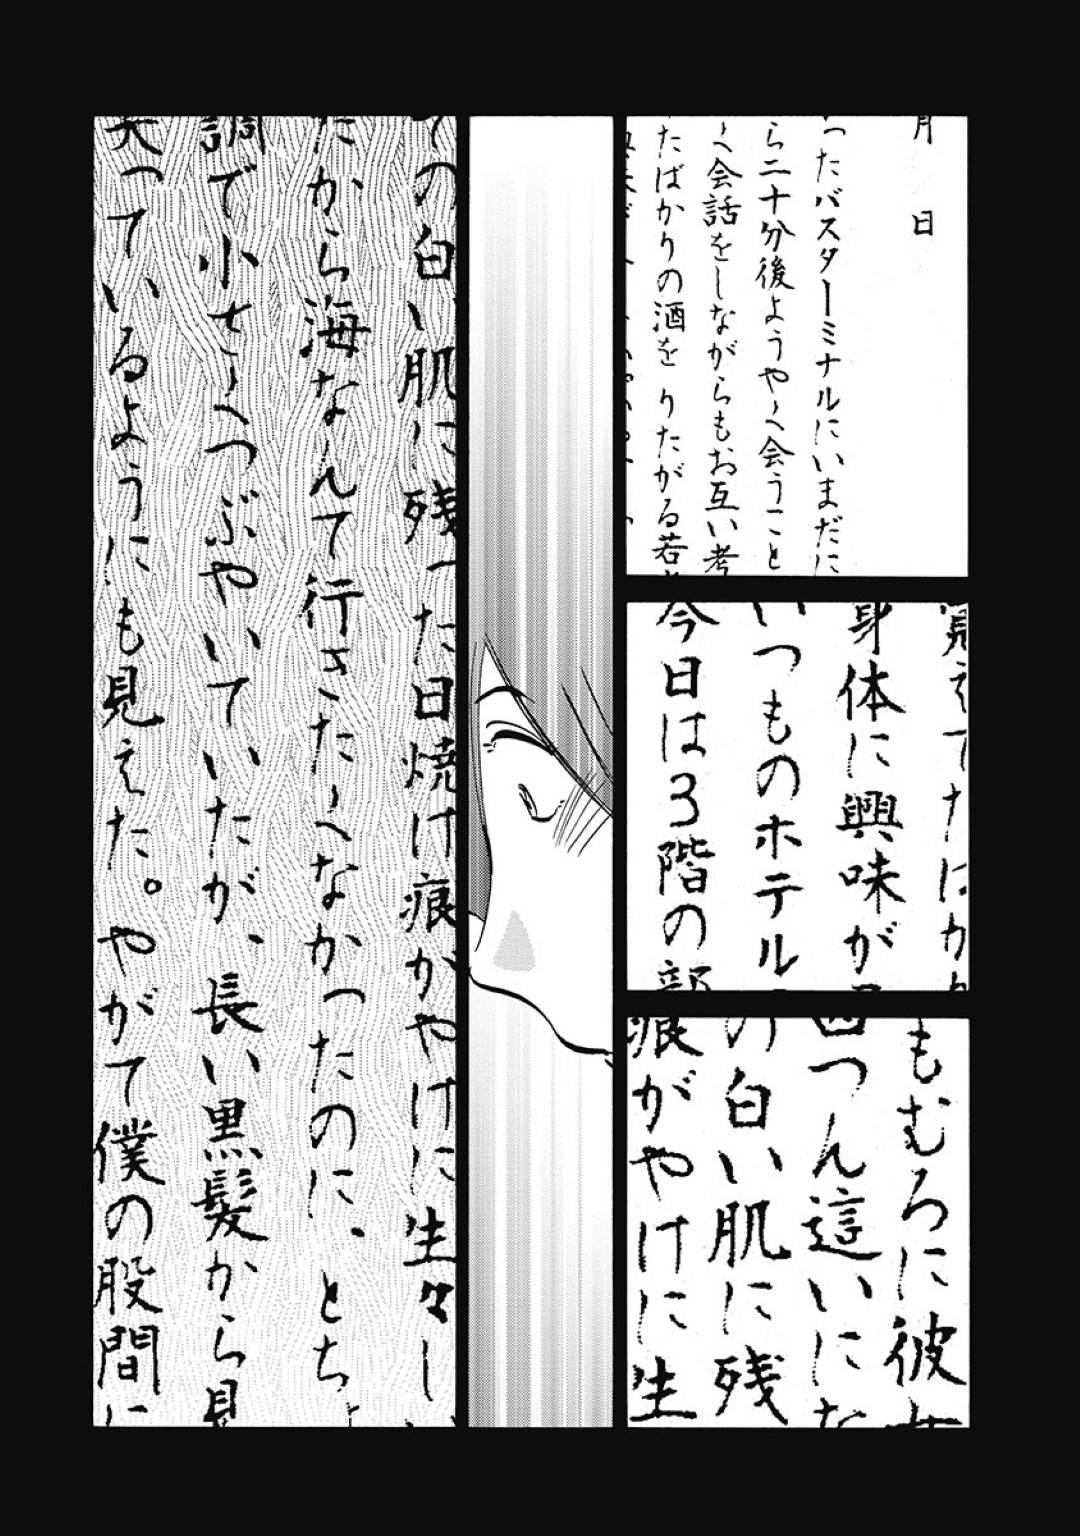 月 日
ったバスターミナルにいまだに
ら二十分後ようやく会うこと
く会話をしながらもお互い考
たばかりの酒を りたがる若
覚えてたばか
身体に興味が
いつものホテル
今日は3階の部
もむろに彼女
四つん這いにな
の白い肌に残
痕がやけに生
ての白い肌に残った日焼け痕がやけに生々しい
だから海なんて行きたくなかったのに、とち
調で小さくつぶやいていたが、長い黒髪から見
笑っているようにも見えた。やがて僕の股間に